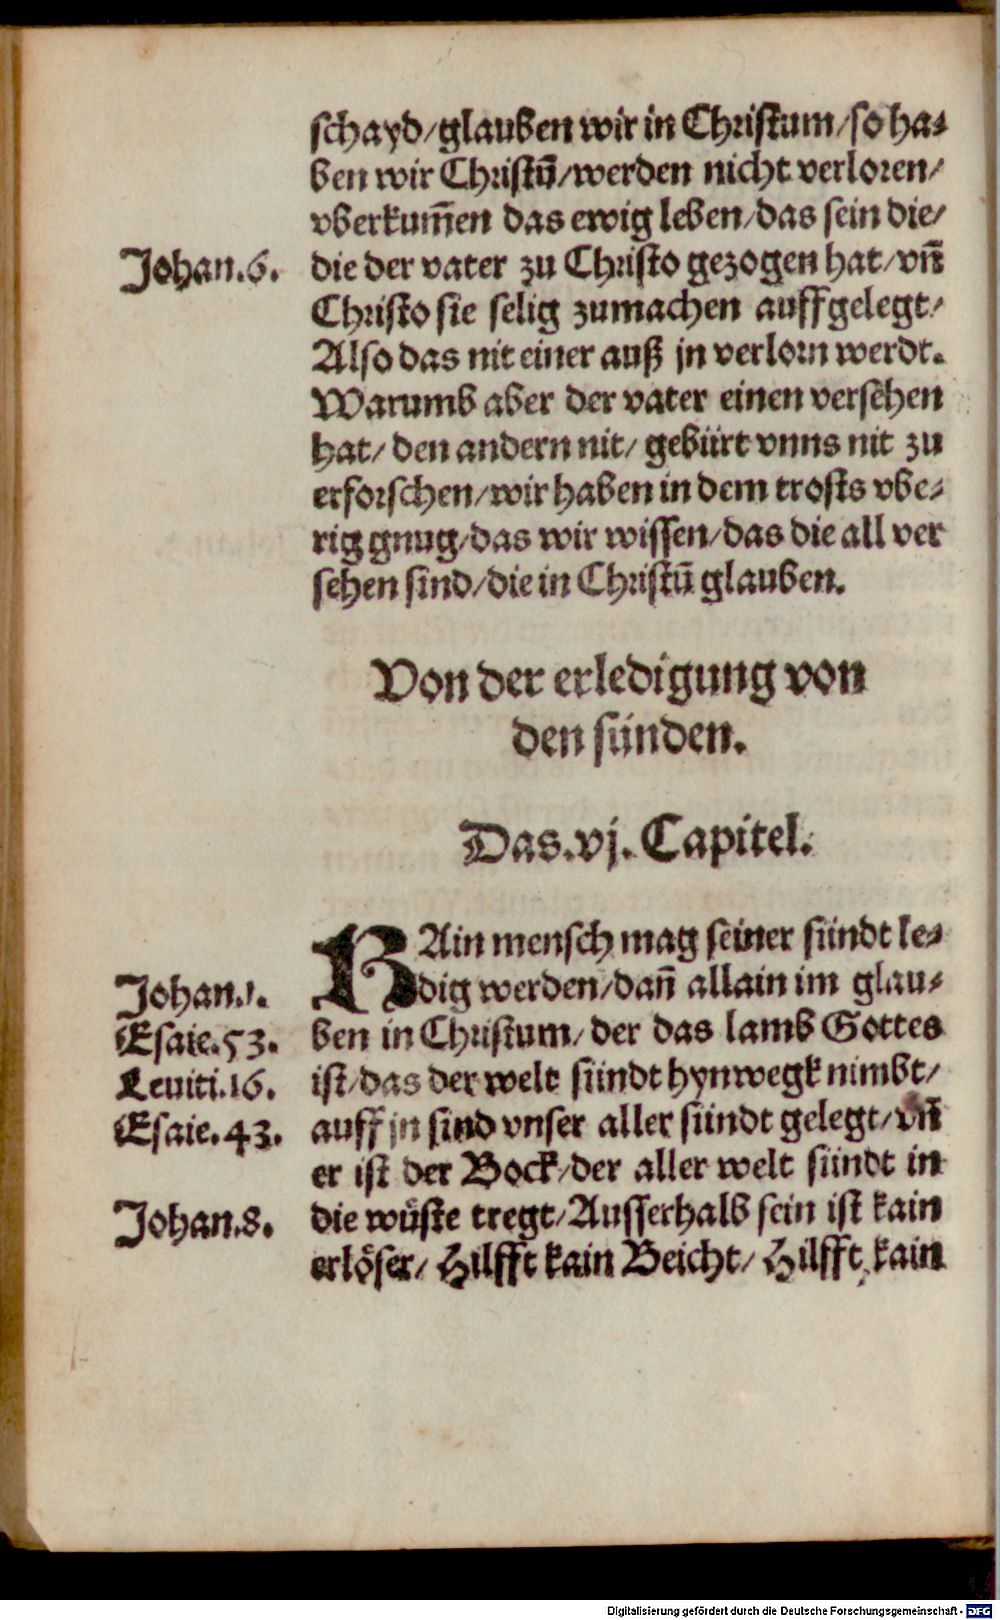 schayd/glauben wir in Christum/so ha-
ben wir Christū/werden nicht verloren/
vberkum̄en das ewig leben/das sein die/
Johan.6.
die der vater zu Christo gezogen hat/vn̄
Christo sie selig zumachen auffgelegt/
Also das nit einer auß jn verlorn werdt.
Warumb aber der vater einen versehen
hat/ den andern nit/ gebürt vnns nit zu
erforschen/wir haben in dem trosts vbe-
rig gnug/das wir wissen/das die all ver
sehen sind/die in Christū glauben.
Von der erledigung von
den sünden.
Das.vj.Capitel.
KAin mensch mag seiner sündt le-
Johan.1.
dig werden/dan̄ allain im glau-
Esaie.53.
ben in Christum/ der das lamb Gottes
Leuiti.16.
ist/das der welt sündt hynwegk nimbt/
Esaie.43.
auff jn sind vnser aller sündt gelegt/vn̄
er ist der Bock/der aller welt sündt in
Johan.8.
die wüste tregt/Ausserhalb sein ist kain
erlöser/ Hilfft kain Beicht/ Hilfft kain
Digitalisierung gefördert durch die Deutsche Forschungsgemeinschaft - DFG